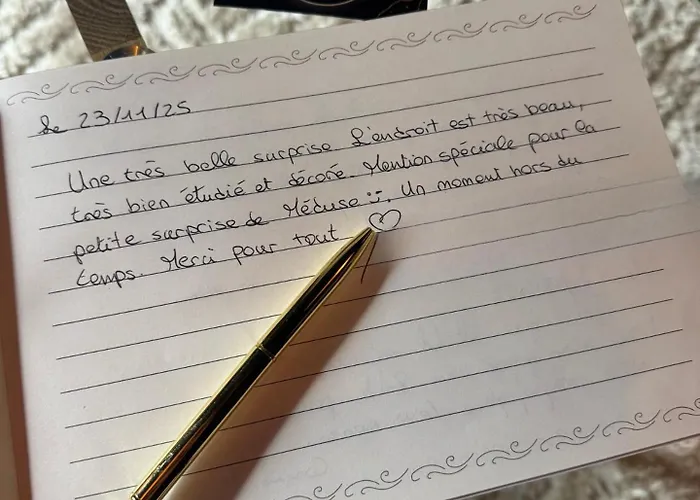 Le 23/11/25
Une très belle surprise L'endroit est très beau,
très bien étudié et décoré. Mention spéciale pour la
petite surprise de Méduse :). Un moment hors du
temps. Merci pour tout ♡